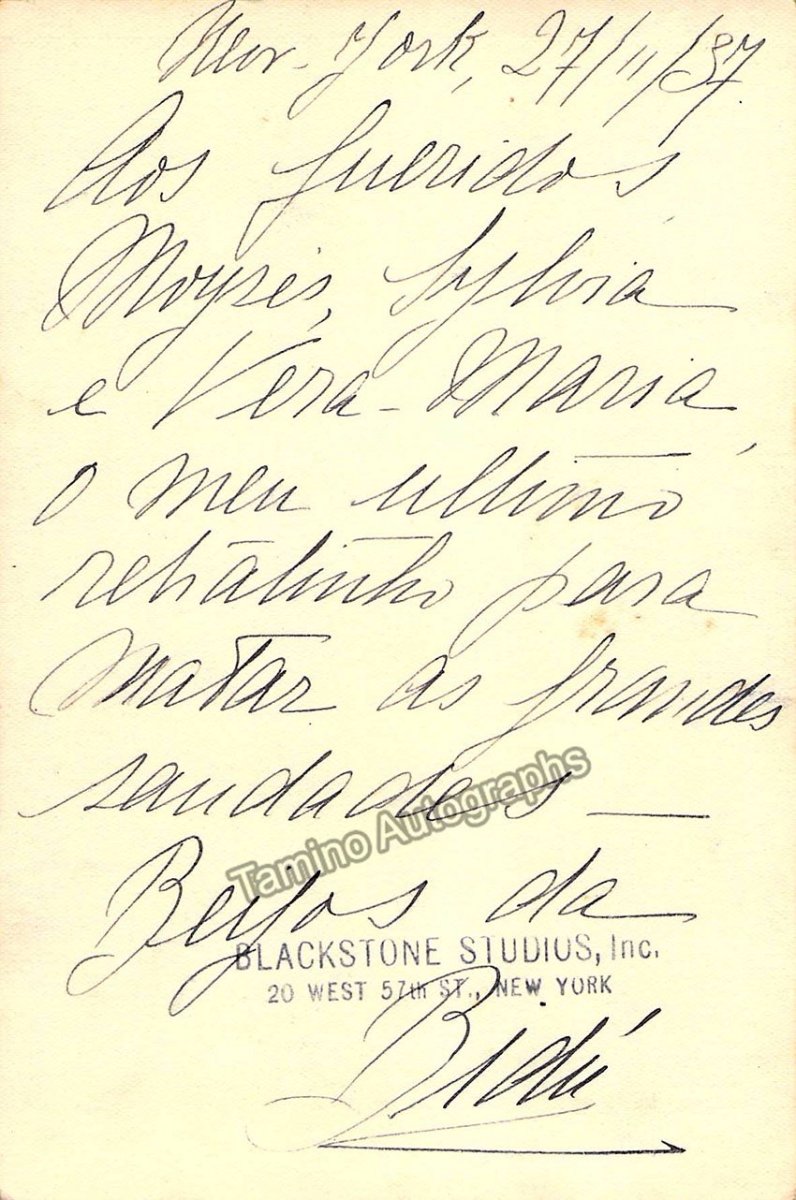 New-York, 27/11/37.
Aos queridos
Moysés, Sylvia
e Vera-Maria,
o meu ultimo
retratinho para
matar as grandes
saudades —
Tamino Autographs
Beijos da
BLACKSTONE STUDIOS, Inc.
20 WEST 57th ST., NEW YORK
Bidú